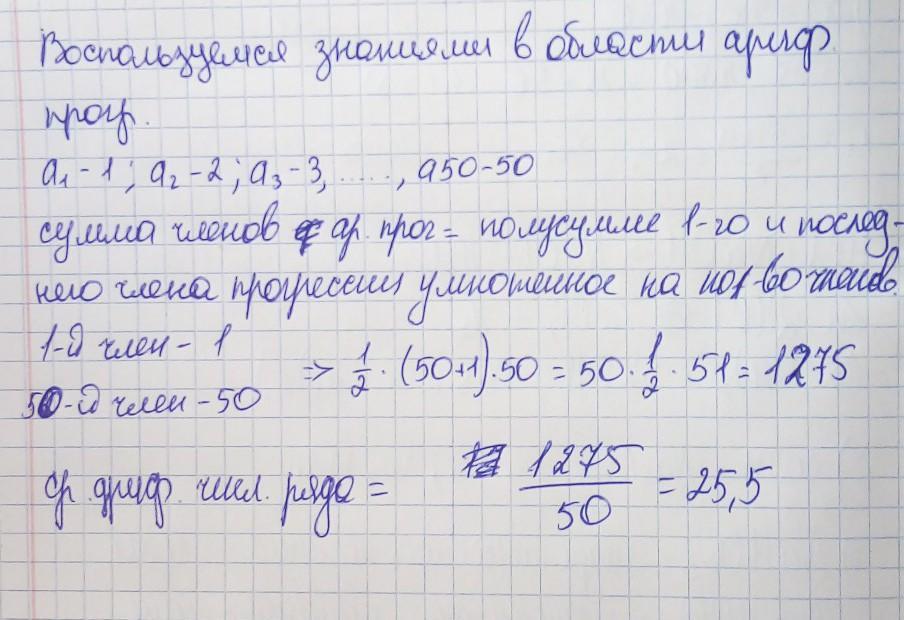 Воспользуемся знаниями в области ариф.
прогр.
a₁ - 1 ; a₂ - 2 ; a₃ - 3, ....., a50 - 50
сумма членов ар. прог = полусумме 1-го и послед-
него члена прогрессии умноженное на кол-во членов.
1-й член - 1
50-й член - 50
=> 1/2 · (50+1) · 50 = 50 · 1/2 · 51 = 1275
ср. ариф. числ. ряда = 1275/50 = 25,5